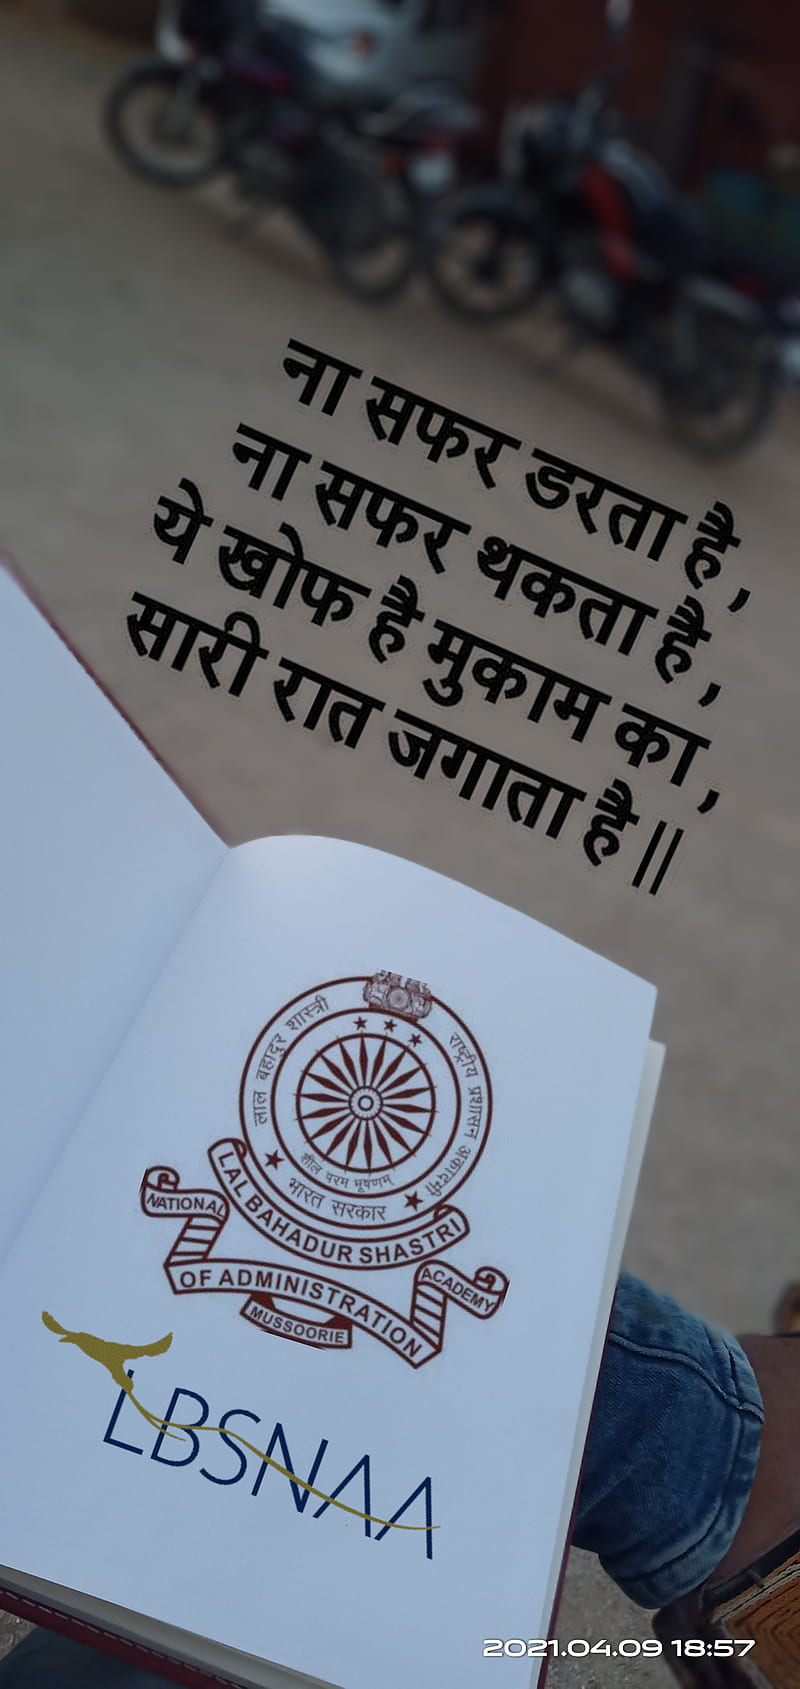 ना सफर डरता है,
ना सफर थकता है,
ये खोफ है मुकाम का,
सारी रात जगाता है||
लाल बहादुर शास्त्री
राष्ट्रीय प्रशासन अकादमी
शीलं परम भूषणम्
भारत सरकार
LAL BAHADUR SHASTRI
NATIONAL
ACADEMY
OF ADMINISTRATION
MUSSOORIE
LBSNAA
2021.04.09 18:57